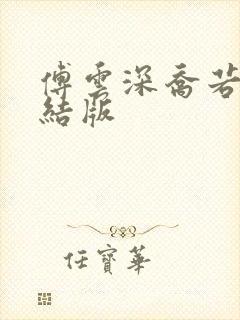 傅雲深喬若
結版
任寶華